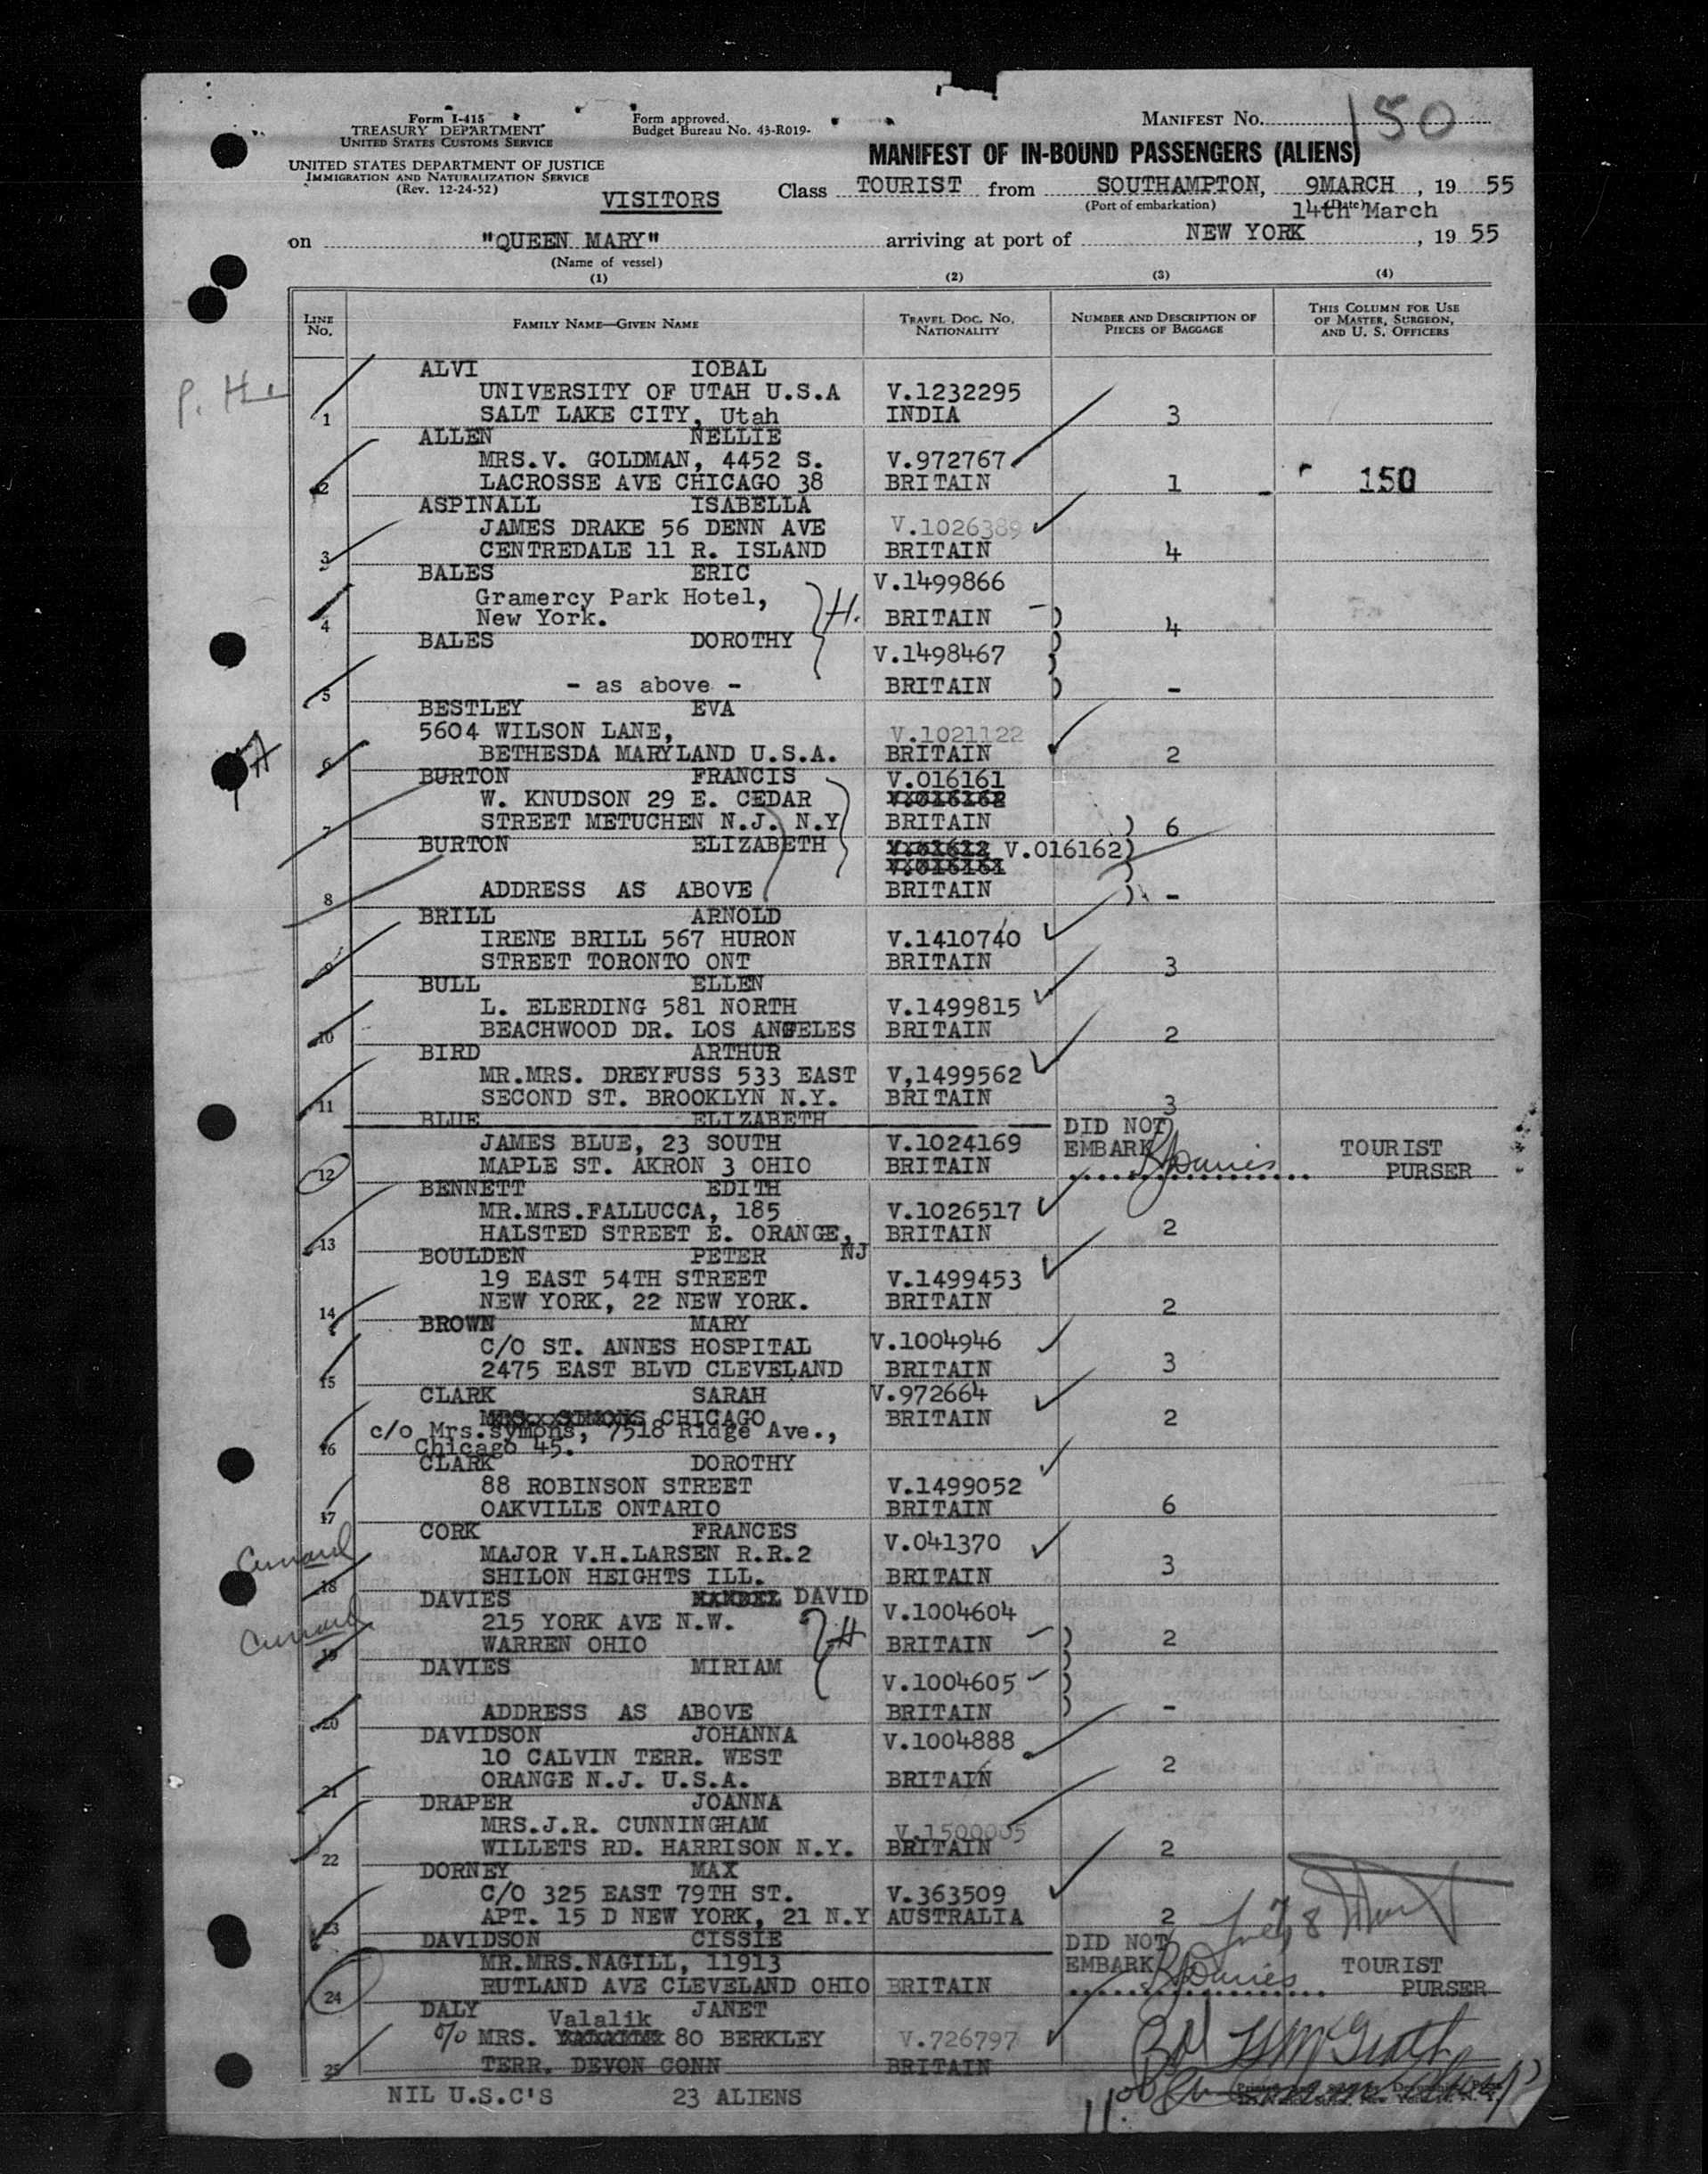 Form I-415
TREASURY DEPARTMENT
UNITED STATES CUSTOMS SERVICE
UNITED STATES DEPARTMENT OF JUSTICE
IMMIGRATION AND NATURALIZATION SERVICE
(Rev. 12-24-52)
Form approved.
Budget Bureau No. 43-R019-
MANIFEST NO. 150
MANIFEST OF IN-BOUND PASSENGERS (ALIENS)
VISITORS Class TOURIST from SOUTHAMPTON, 9MARCH, 19 55
(Port of embarkation) (Date)
14th March
on "QUEEN MARY" arriving at port of NEW YORK, 19 55
(Name of vessel)
(1) (2) (3) (4)
LINE NO. FAMILY NAME—GIVEN NAME TRAVEL DOC. NO. NATIONALITY NUMBER AND DESCRIPTION OF PIECES OF BAGGAGE THIS COLUMN FOR USE OF MASTER, SURGEON, AND U. S. OFFICERS
ALVI IOBAL
UNIVERSITY OF UTAH U.S.A V.1232295
1 SALT LAKE CITY, Utah INDIA 3
ALLEN NELLIE
MRS.V. GOLDMAN, 4452 S. V.972767
2 LACROSSE AVE CHICAGO 38 BRITAIN 1 150
ASPINALL ISABELLA
JAMES DRAKE 56 DENN AVE V.1026389
3 CENTREDALE 11 R. ISLAND BRITAIN 4
BALES ERIC V.1499866
Gramercy Park Hotel,
4 New York. H. BRITAIN ) 4
BALES DOROTHY V.1498467 )
5 - as above - BRITAIN ) -
BESTLEY EVA
5604 WILSON LANE, V.1021122
6 BETHESDA MARYLAND U.S.A. BRITAIN 2
BURTON FRANCIS V.016161
W. KNUDSON 29 E. CEDAR V.016162
7 STREET METUCHEN N.J. N.Y BRITAIN ) 6
BURTON ELIZABETH V.016162)
V.016161
8 ADDRESS AS ABOVE BRITAIN ) -
BRILL ARNOLD
IRENE BRILL 567 HURON V.1410740
9 STREET TORONTO ONT BRITAIN 3
BULL ELLEN
L. ELERDING 581 NORTH V.1499815
10 BEACHWOOD DR. LOS ANGELES BRITAIN 2
BIRD ARTHUR
MR.MRS. DREYFUSS 533 EAST V,1499562
11 SECOND ST. BROOKLYN N.Y. BRITAIN 3
BLUE ELIZABETH DID NOT
JAMES BLUE, 23 SOUTH V.1024169 EMBARK TOURIST
12 MAPLE ST. AKRON 3 OHIO BRITAIN PURSER
BENNETT EDITH
MR.MRS.FALLUCCA, 185 V.1026517
13 HALSTED STREET E. ORANGE, BRITAIN 2
BOULDEN PETER NJ
19 EAST 54TH STREET V.1499453
14 NEW YORK, 22 NEW YORK. BRITAIN 2
BROWN MARY
C/O ST. ANNES HOSPITAL V.1004946
15 2475 EAST BLVD CLEVELAND BRITAIN 3
CLARK SARAH V.972664
CHICAGO BRITAIN 2
16 c/o Mrs.Symons, 7518 Ridge Ave.,
Chicago 45.
CLARK DOROTHY
88 ROBINSON STREET V.1499052
17 OAKVILLE ONTARIO BRITAIN 6
CORK FRANCES V.041370
Cunard MAJOR V.H.LARSEN R.R.2 3
18 SHILON HEIGHTS ILL. BRITAIN
DAVIES DAVID V.1004604
Cunard 215 YORK AVE N.W.
19 WARREN OHIO H BRITAIN ) 2
DAVIES MIRIAM V.1004605 )
20 ADDRESS AS ABOVE BRITAIN ) -
DAVIDSON JOHANNA V.1004888
10 CALVIN TERR. WEST 2
21 ORANGE N.J. U.S.A. BRITAIN
DRAPER JOANNA
MRS.J.R. CUNNINGHAM V.1500005
22 WILLETS RD. HARRISON N.Y. BRITAIN 2
DORNEY MAX
C/O 325 EAST 79TH ST. V.363509
23 APT. 15 D NEW YORK, 21 N.Y AUSTRALIA 2
DAVIDSON CISSIE DID NOT
MR.MRS.NAGILL, 11913 EMBARK TOURIST
24 RUTLAND AVE CLEVELAND OHIO BRITAIN PURSER
DALY JANET
Valalik
c/o MRS. 80 BERKLEY V.726797
25 TERR. DEVON CONN BRITAIN
NIL U.S.C'S 23 ALIENS